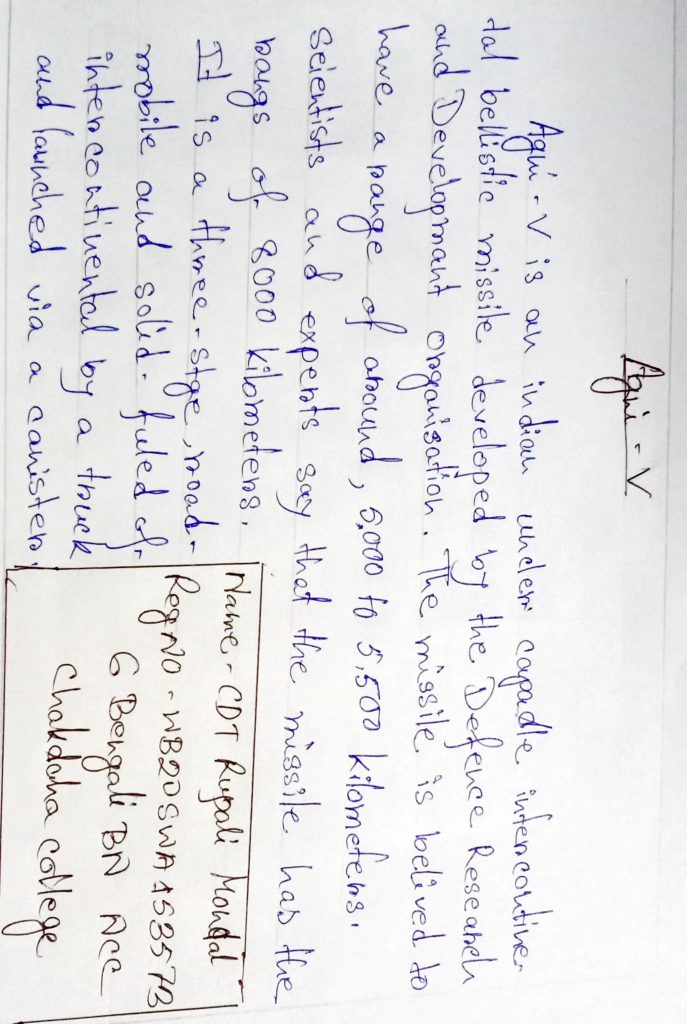 Agni - V
Agni - V is an indian unclear capadle intercontine-
tal bellistic missile developed by the Defence Research
and Developmant organisation. The missile is belived to
have a range of around, 5,000 to 5,500 kilometers.
scientists and experts say that the missile has the
rangs of 8000 kilometers.
It is a three-stge, road-
mobile and solid-fuled of-
intercontinental by a truck
and launched via a canister.
Name - CDT Rupali Mondal
Reg NO - WB20SWA153573
6 Bengali BN NCC
chakdaha college